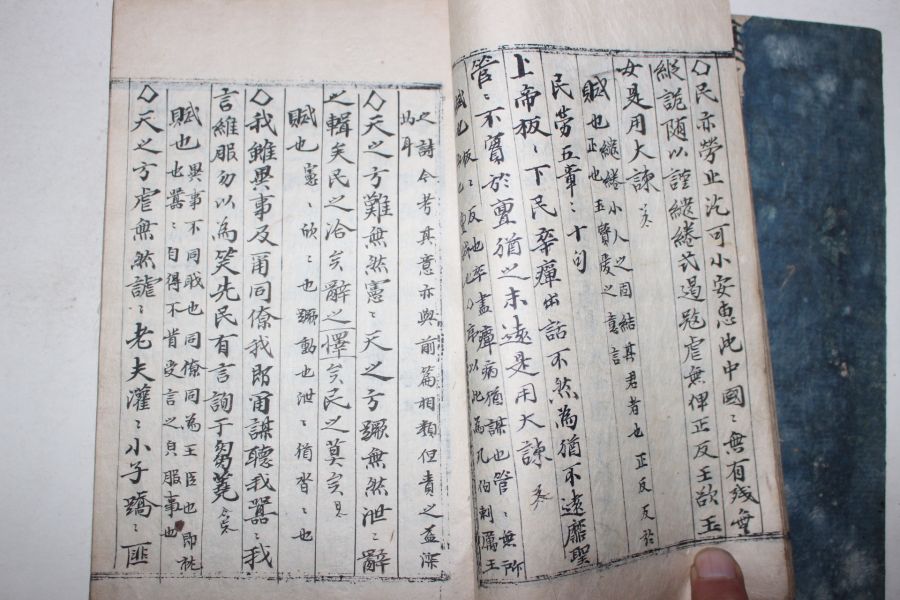 〇民亦勞止汔可小安惠此中國〻無有殘無
縱詭随以謹繾綣式遏寇虐無俾正反王欲玉
女是用大諫
賦也 繾綣小人之固結其君者也正反反於
正也玉寶愛之意言
民勞五章〻十句
上帝板〻下民卒癉出話不然為猶不遠靡聖
管〻不實於亶猶之未遠是用大諫
賦也 板〻反也卒盡癉病猶謀也管〻無所
序以此為凡伯刺厲王
之詩今考其意亦與前篇相類但責之益深
此耳
〇天之方難無然憲〻天之方蹶無然泄〻辭
之輯矣民之洽矣辭之懌矣民之莫矣
賦也 憲〻欣〻也蹶動也泄〻猶沓〻也
〇我雖異事及甭同僚我即甭謀聽我囂〻我
言維服勿以為笑先民有言詢于芻蕘
賦也 異事不同職也同僚同為王臣也即就
也囂〻自得不肯受言之皃服事也
〇天之方虐無然謔〻老夫灌〻小子蹻〻匪